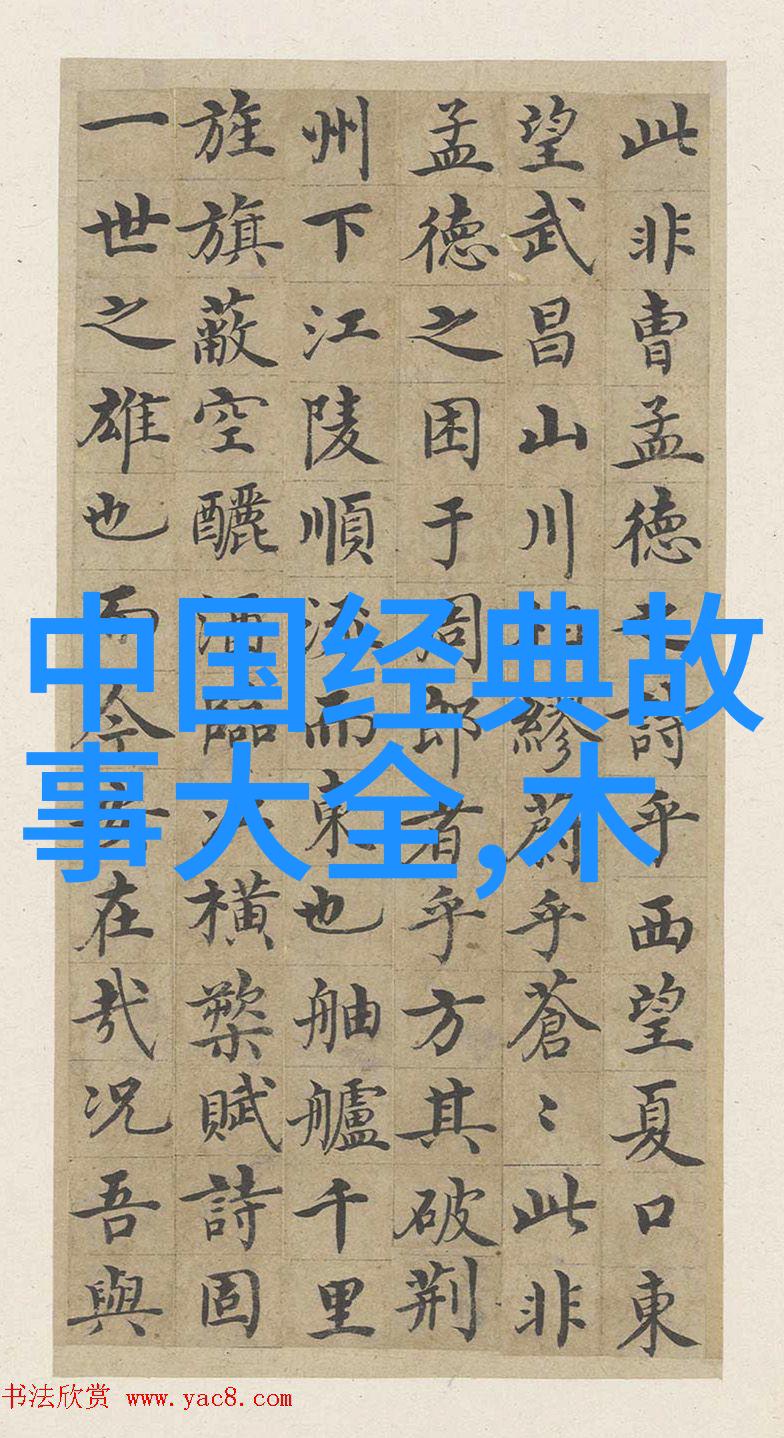 此非曹孟德之詩乎西望夏口東
望武昌山川相繆蔚乎蒼〻此非
孟德之困于周郎者乎方其破荆
州下江陵順流而東也舳艫千里
旌旗蔽空釃酒臨江横槊賦詩固
一世之雄也而今安在哉况吾與
中国经典故
事大全,木
书法欣赏 www.yac8.com